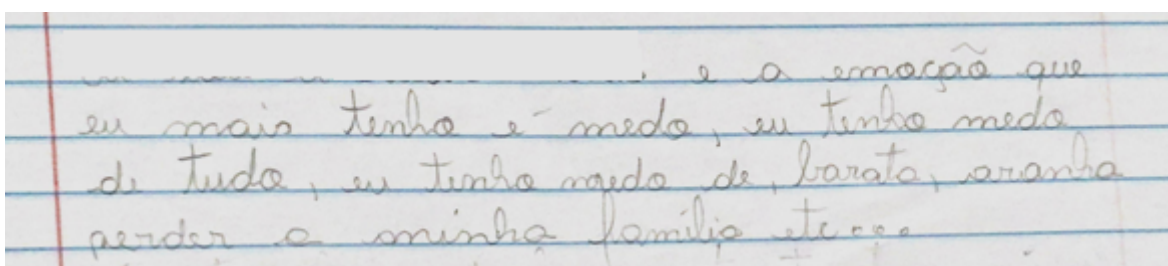 e a emoção que
eu mais tenho é medo, eu tenho medo
de tudo, eu tenho medo de, barata, aranha
perder a minha família etc...